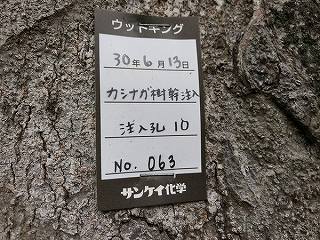 ウッドキング
30年6月13日
カシナガ樹幹注入
注入孔 10
No. 063
サンケイ化学